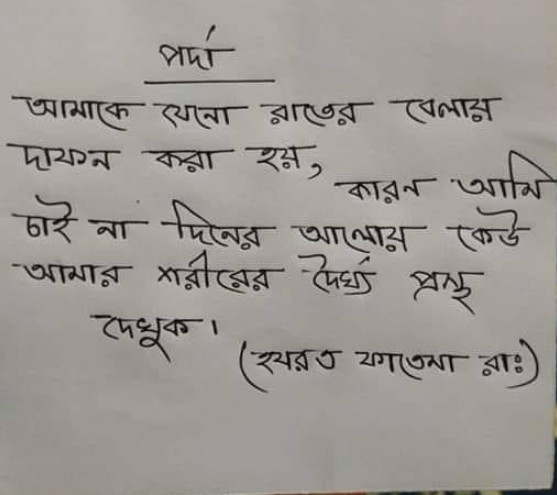 পর্দা
আমাকে যেনো রাতের বেলায়
দাফন করা হয়,
কারন আমি
চাই না দিনের আলোয় কেউ
আমার শরীরের দৈর্ঘ্য প্রস্থ
দেখুক।
(হযরত ফাতেমা রাঃ)